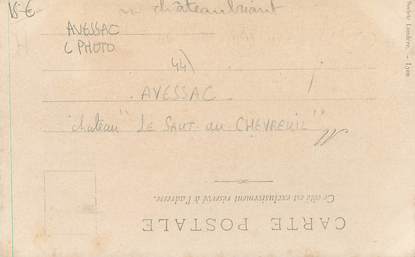 15 €
chateaubriant
AVESSAC
C PHOTO
44)
AVESSAC
chateau "LE SAUT-du CHEVREUIL"
Ce côté est exclusivement réservé à l'adresse.
CARTE POSTALE
Lyon